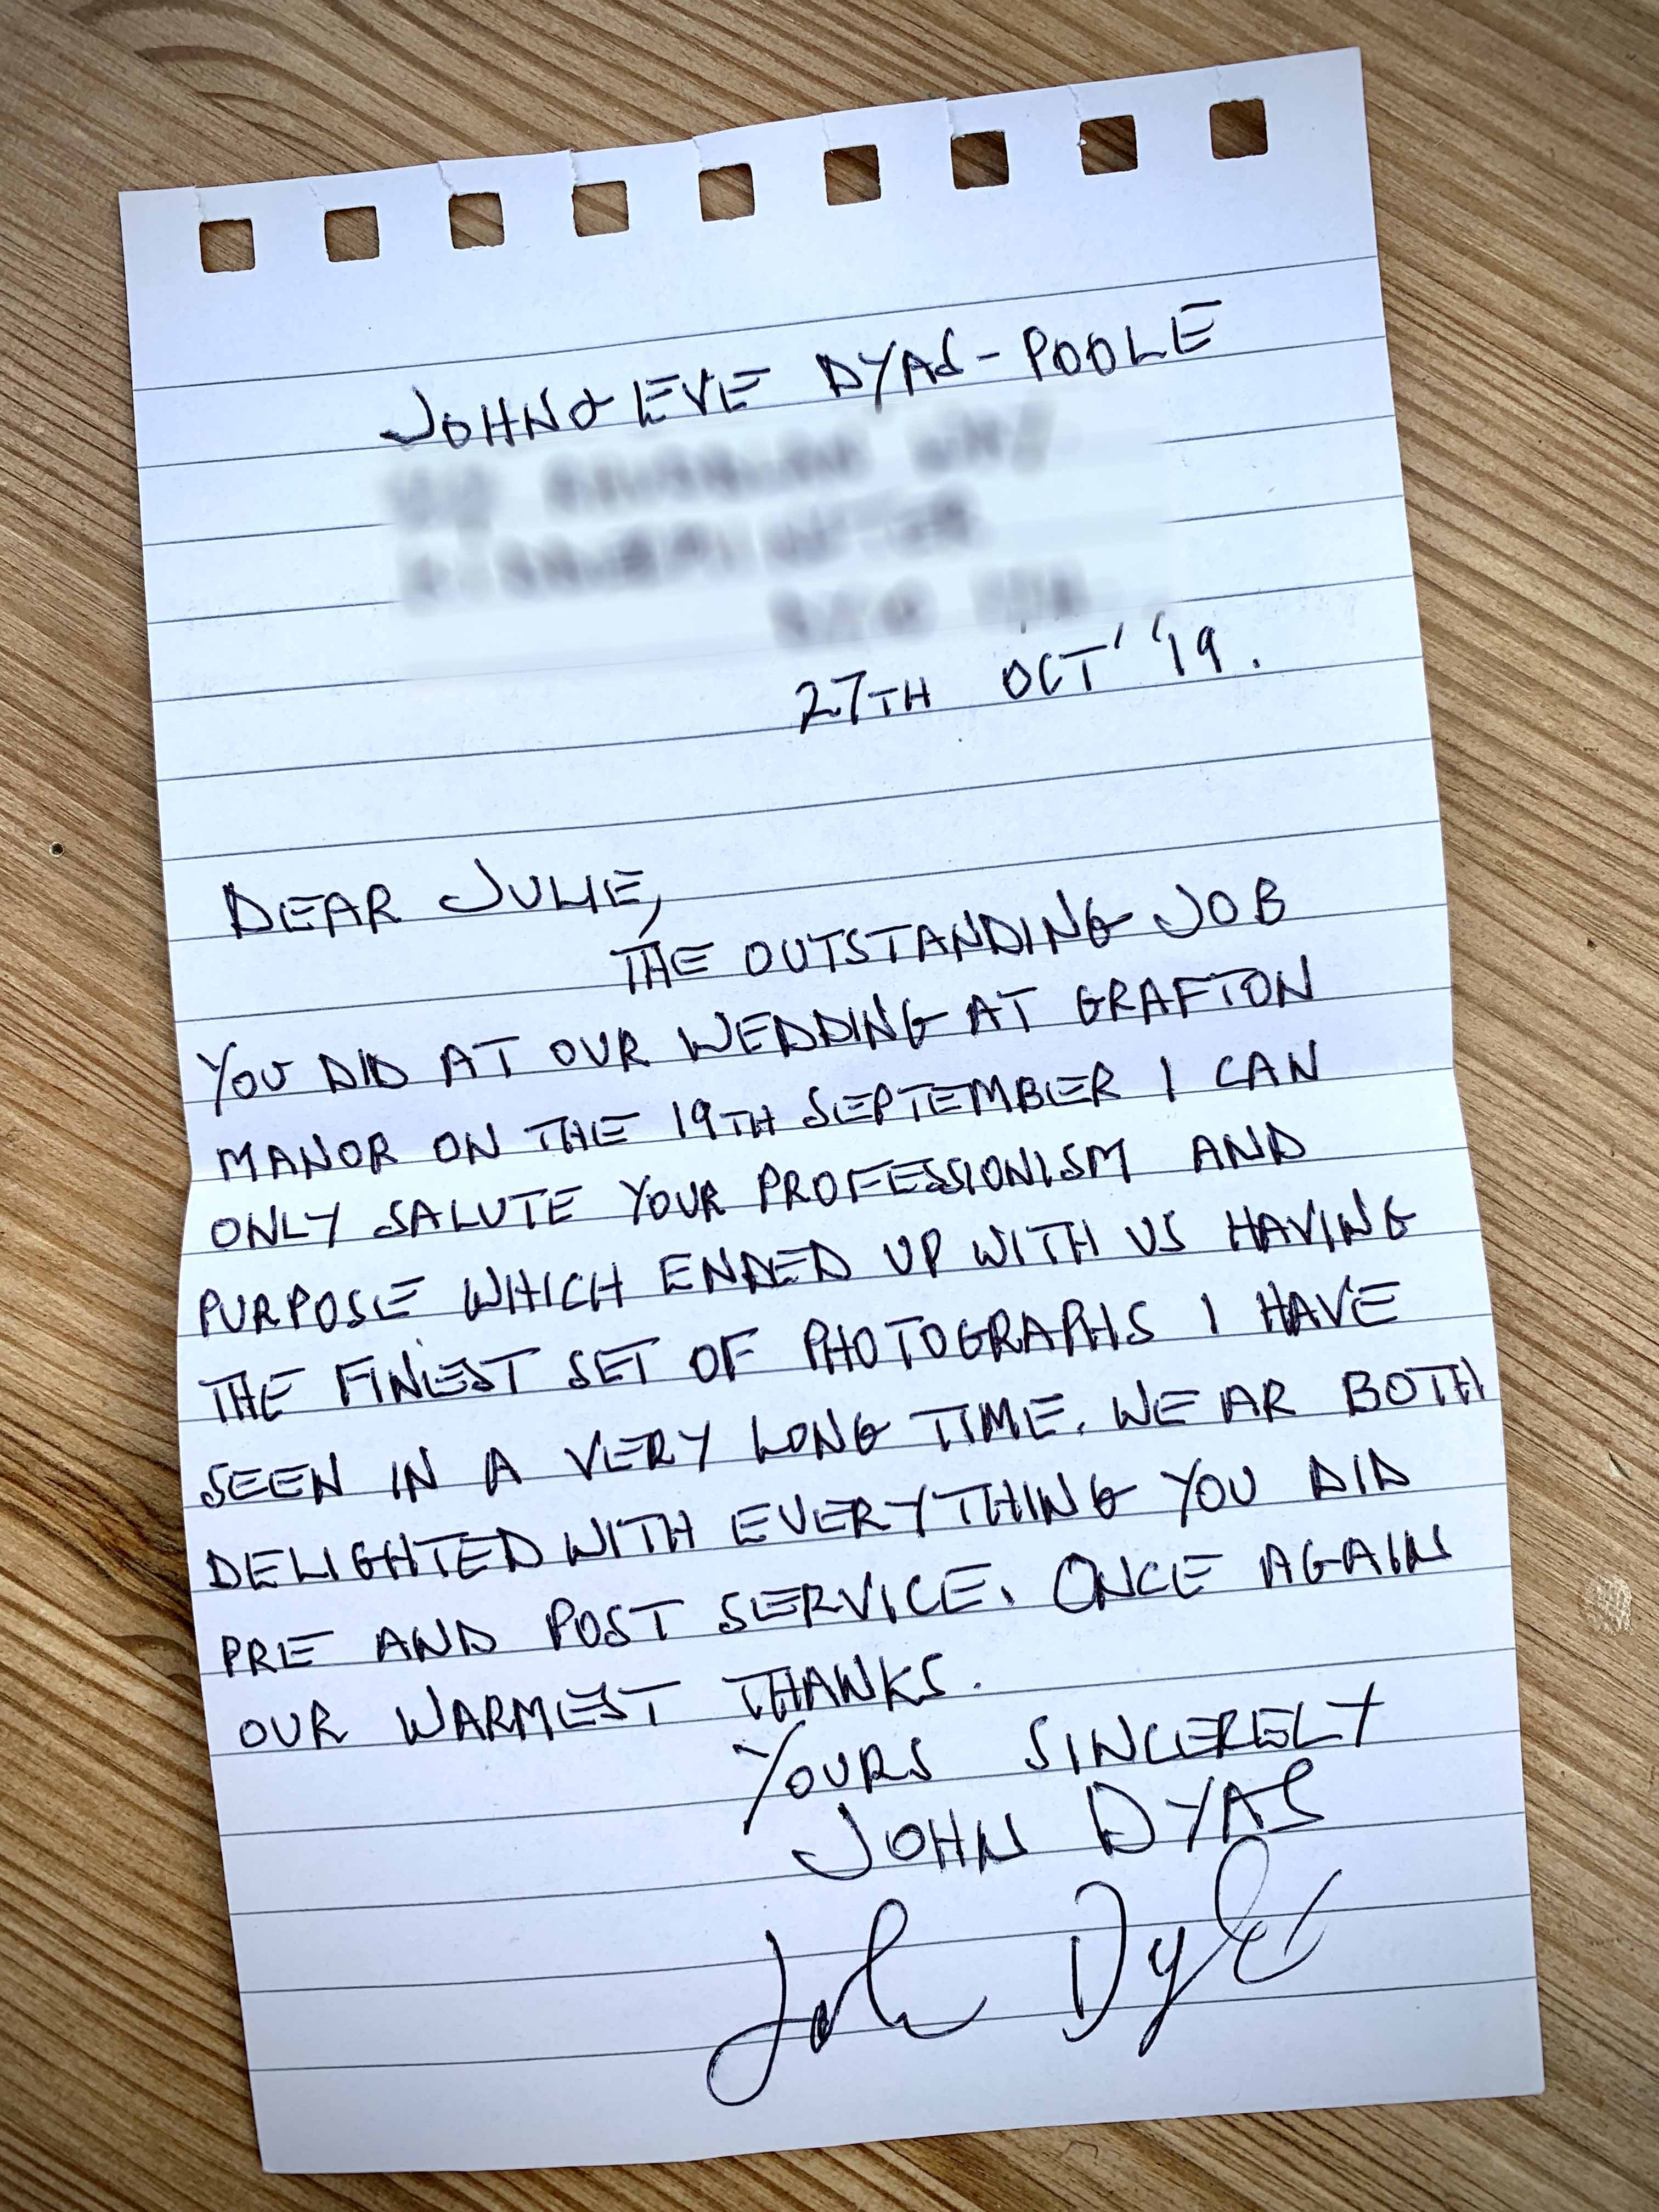 JOHN & EVE DYAS-POOLE
27TH OCT' '19.
DEAR JULIE,
THE OUTSTANDING JOB
YOU DID AT OUR WEDDING AT GRAFTON
MANOR ON THE 19TH SEPTEMBER I CAN
ONLY SALUTE YOUR PROFESSIONISM AND
PURPOSE WHICH ENDED UP WITH US HAVING
THE FINEST SET OF PHOTOGRAPHS I HAVE
SEEN IN A VERY LONG TIME. WE AR BOTH
DELIGHTED WITH EVERYTHING YOU DID
PRE AND POST SERVICE. ONCE AGAIN
OUR WARMEST THANKS.
YOURS SINCERELY
JOHN DYAS
John Dyas